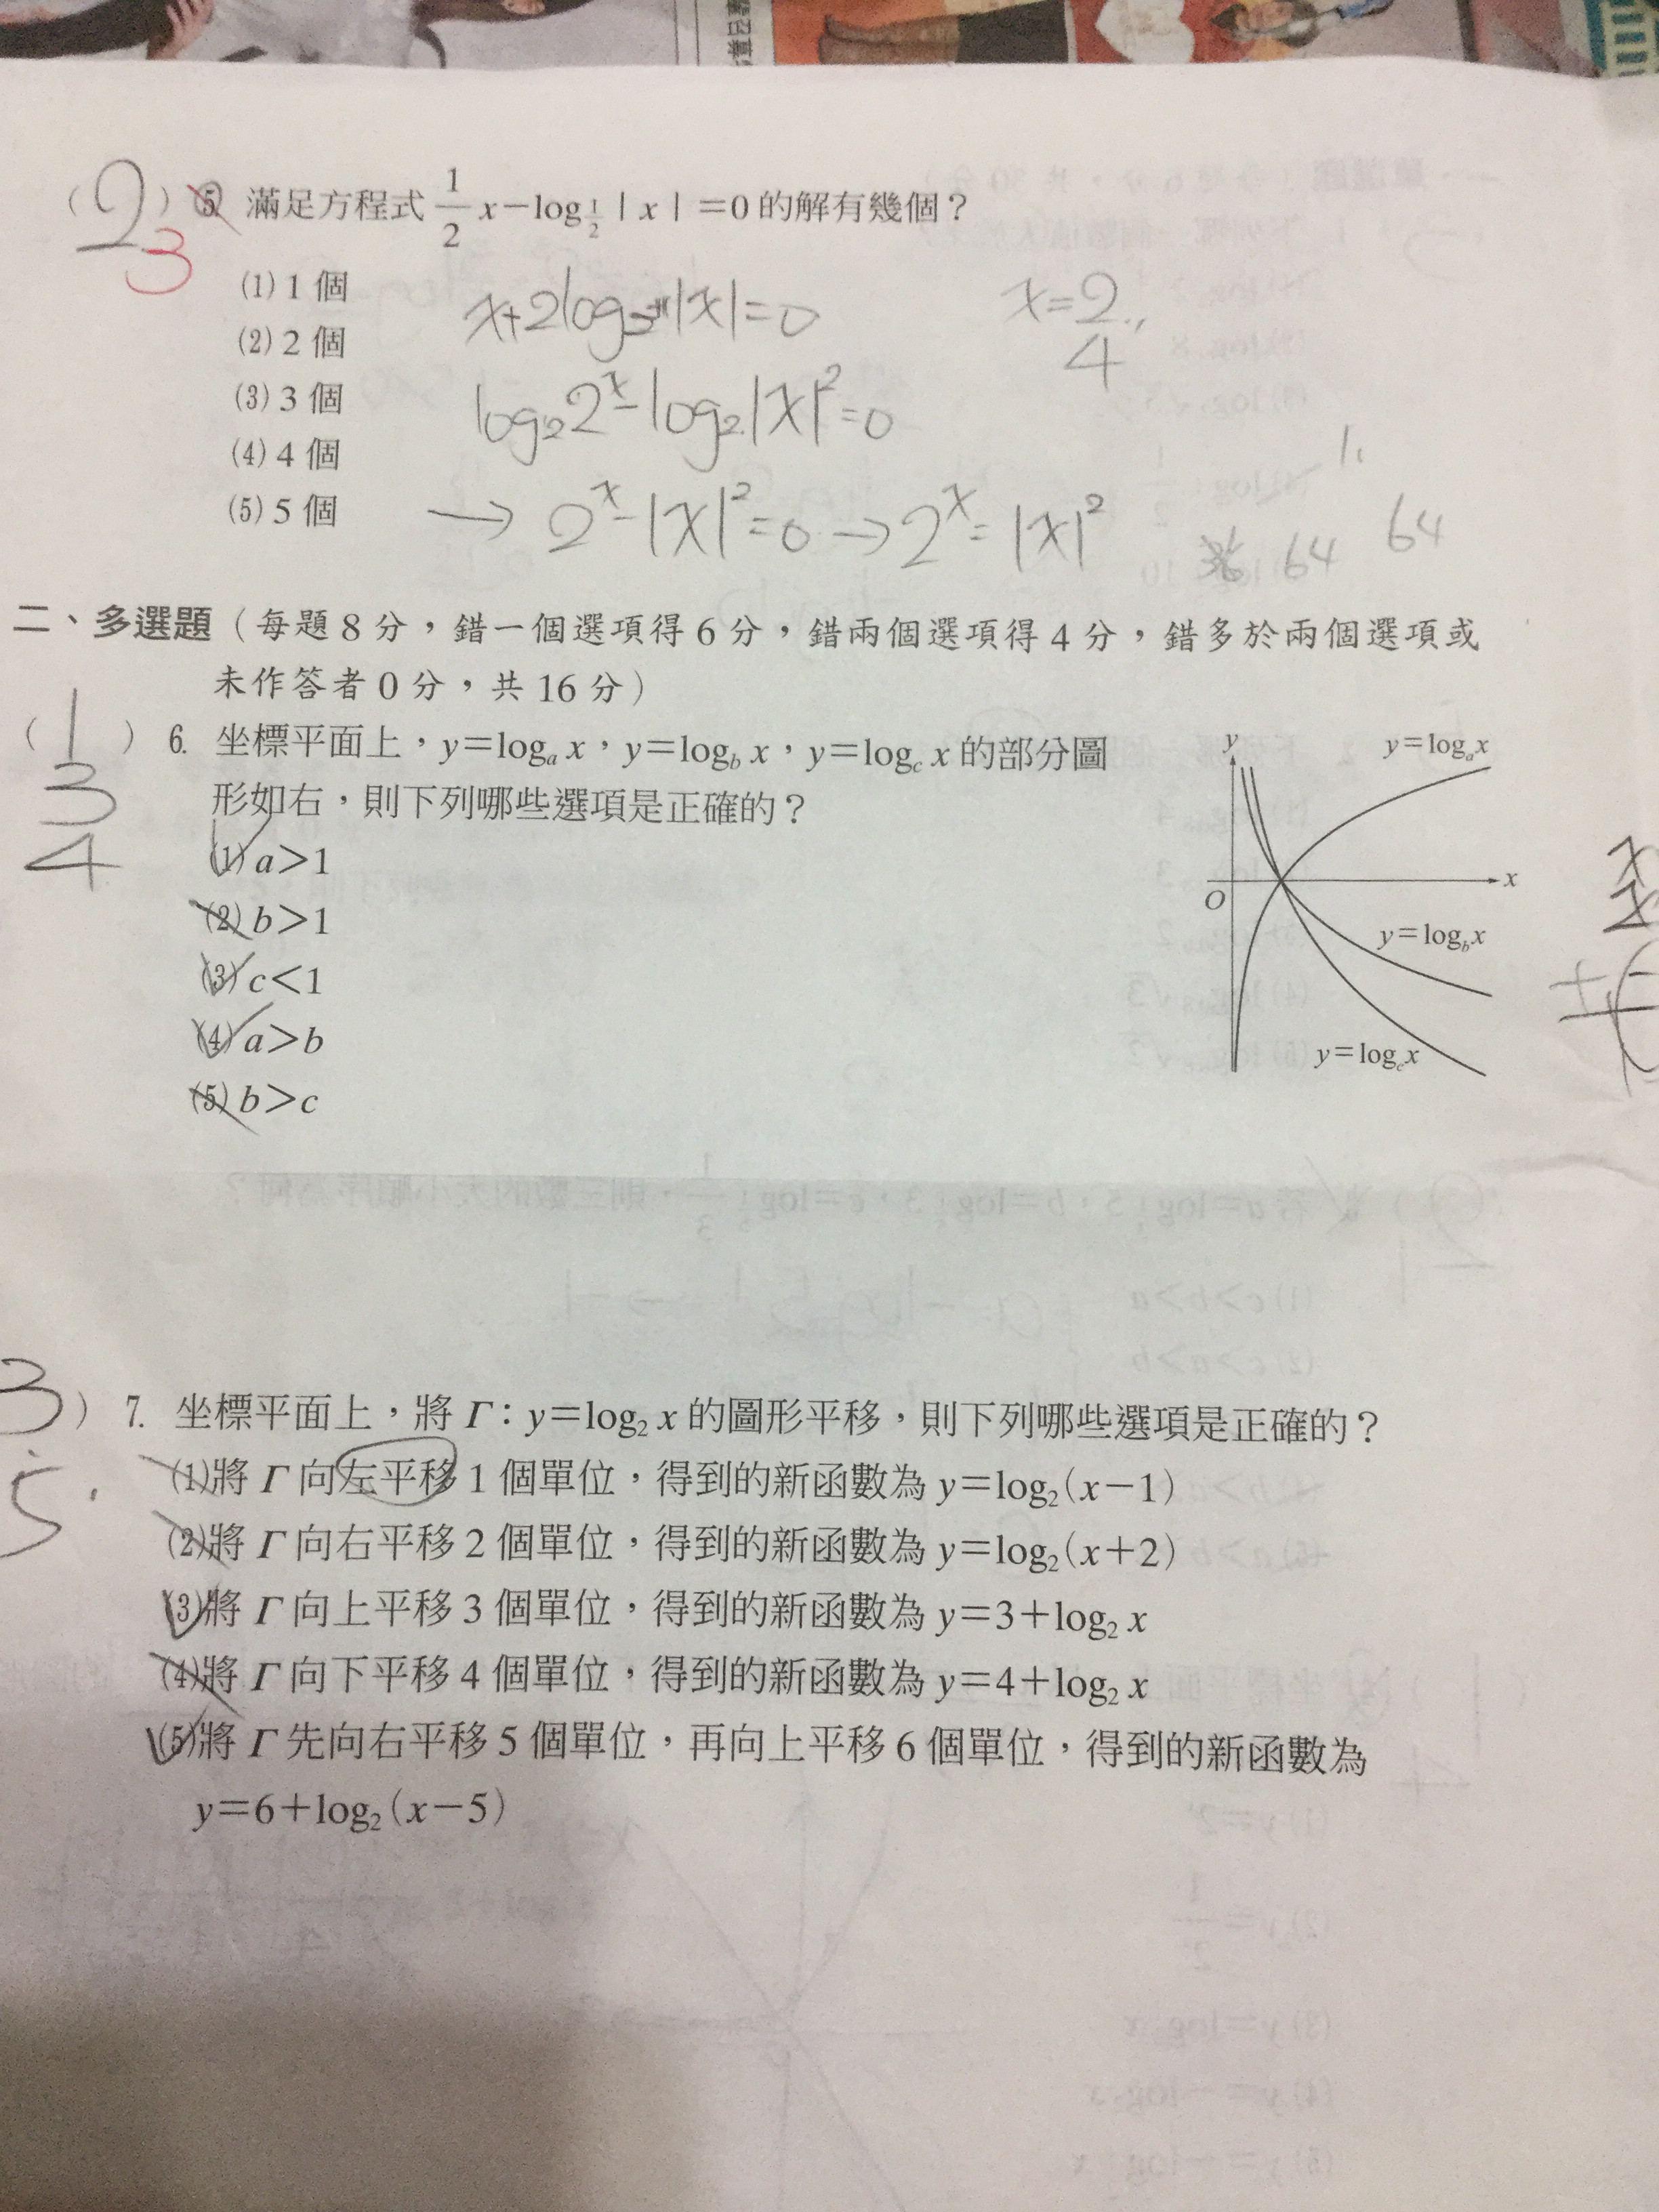 (2) 5. 滿足方程式 1/2 x−log_{1/2}|x|=0 的解有幾個？
3
(1) 1 個
(2) 2 個
(3) 3 個
(4) 4 個
(5) 5 個
x+2log |x|=0
x=2.,
4
log₂2ˣ−log₂|x|²=0
→ 2ˣ−|x|²=0 → 2ˣ=|x|²
64 64
二、多選題（每題 8 分，錯一個選項得 6 分，錯兩個選項得 4 分，錯多於兩個選項或
未作答者 0 分，共 16 分）
(1 3 4) 6. 坐標平面上，y=logₐ x，y=log_b x，y=log_c x 的部分圖
形如右，則下列哪些選項是正確的？
(1) a>1
(2) b>1
(3) c<1
(4) a>b
(5) b>c
y
y=logₐx
x
O
y=log_bx
y=log_cx
3 5) 7. 坐標平面上，將 Γ：y=log₂ x 的圖形平移，則下列哪些選項是正確的？
(1)將 Γ 向左平移 1 個單位，得到的新函數為 y=log₂(x−1)
(2)將 Γ 向右平移 2 個單位，得到的新函數為 y=log₂(x+2)
(3)將 Γ 向上平移 3 個單位，得到的新函數為 y=3+log₂ x
(4)將 Γ 向下平移 4 個單位，得到的新函數為 y=4+log₂ x
(5)將 Γ 先向右平移 5 個單位，再向上平移 6 個單位，得到的新函數為
y=6+log₂(x−5)